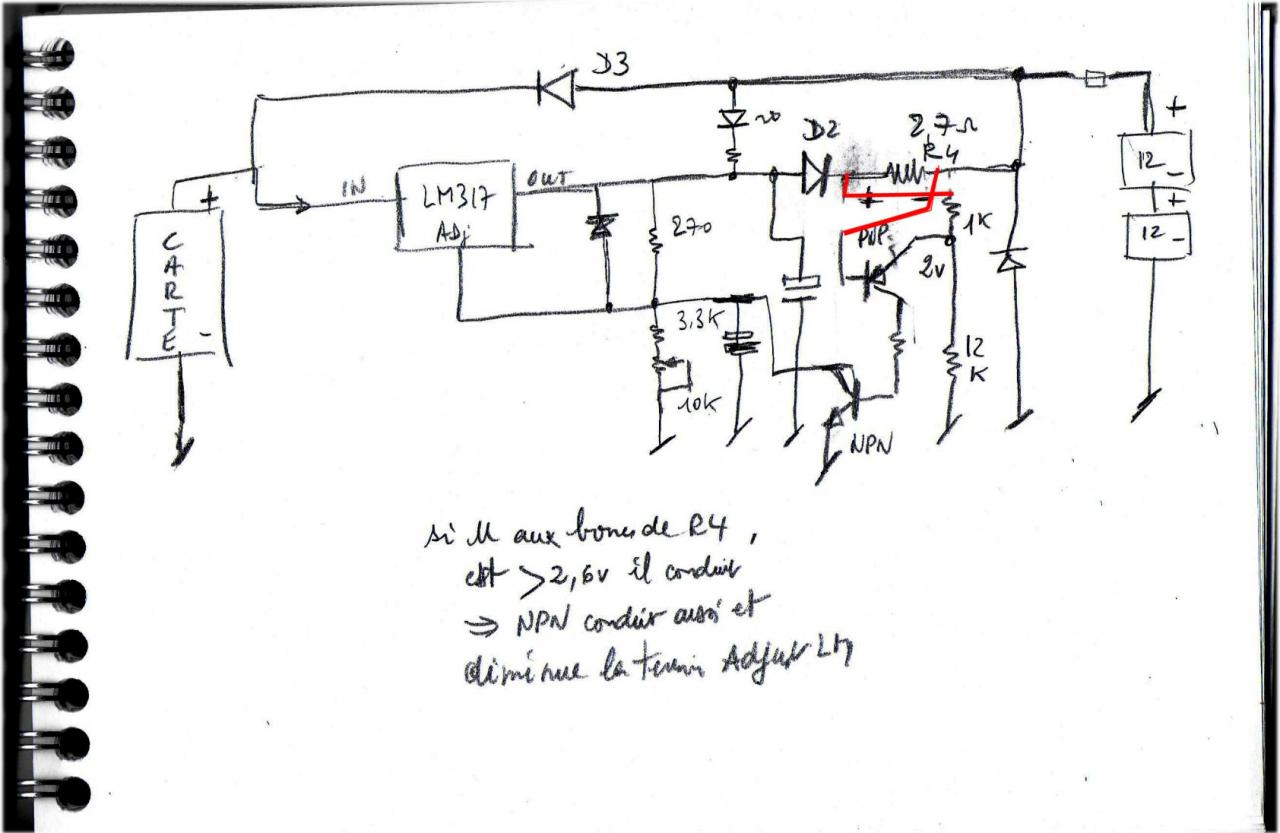 D3
D2
2 7Ω
R4
+
12 -
IN
LM317
ADj
OUT
+
CARTE
-
270
+ -
1K
PNP
2v
+
12 -
3,3K
10K
12
K
NPN
si U aux bornes de R4,
est >2,6v il conduit
⇒ NPN conduit aussi et
diminue la tension Adjust LM